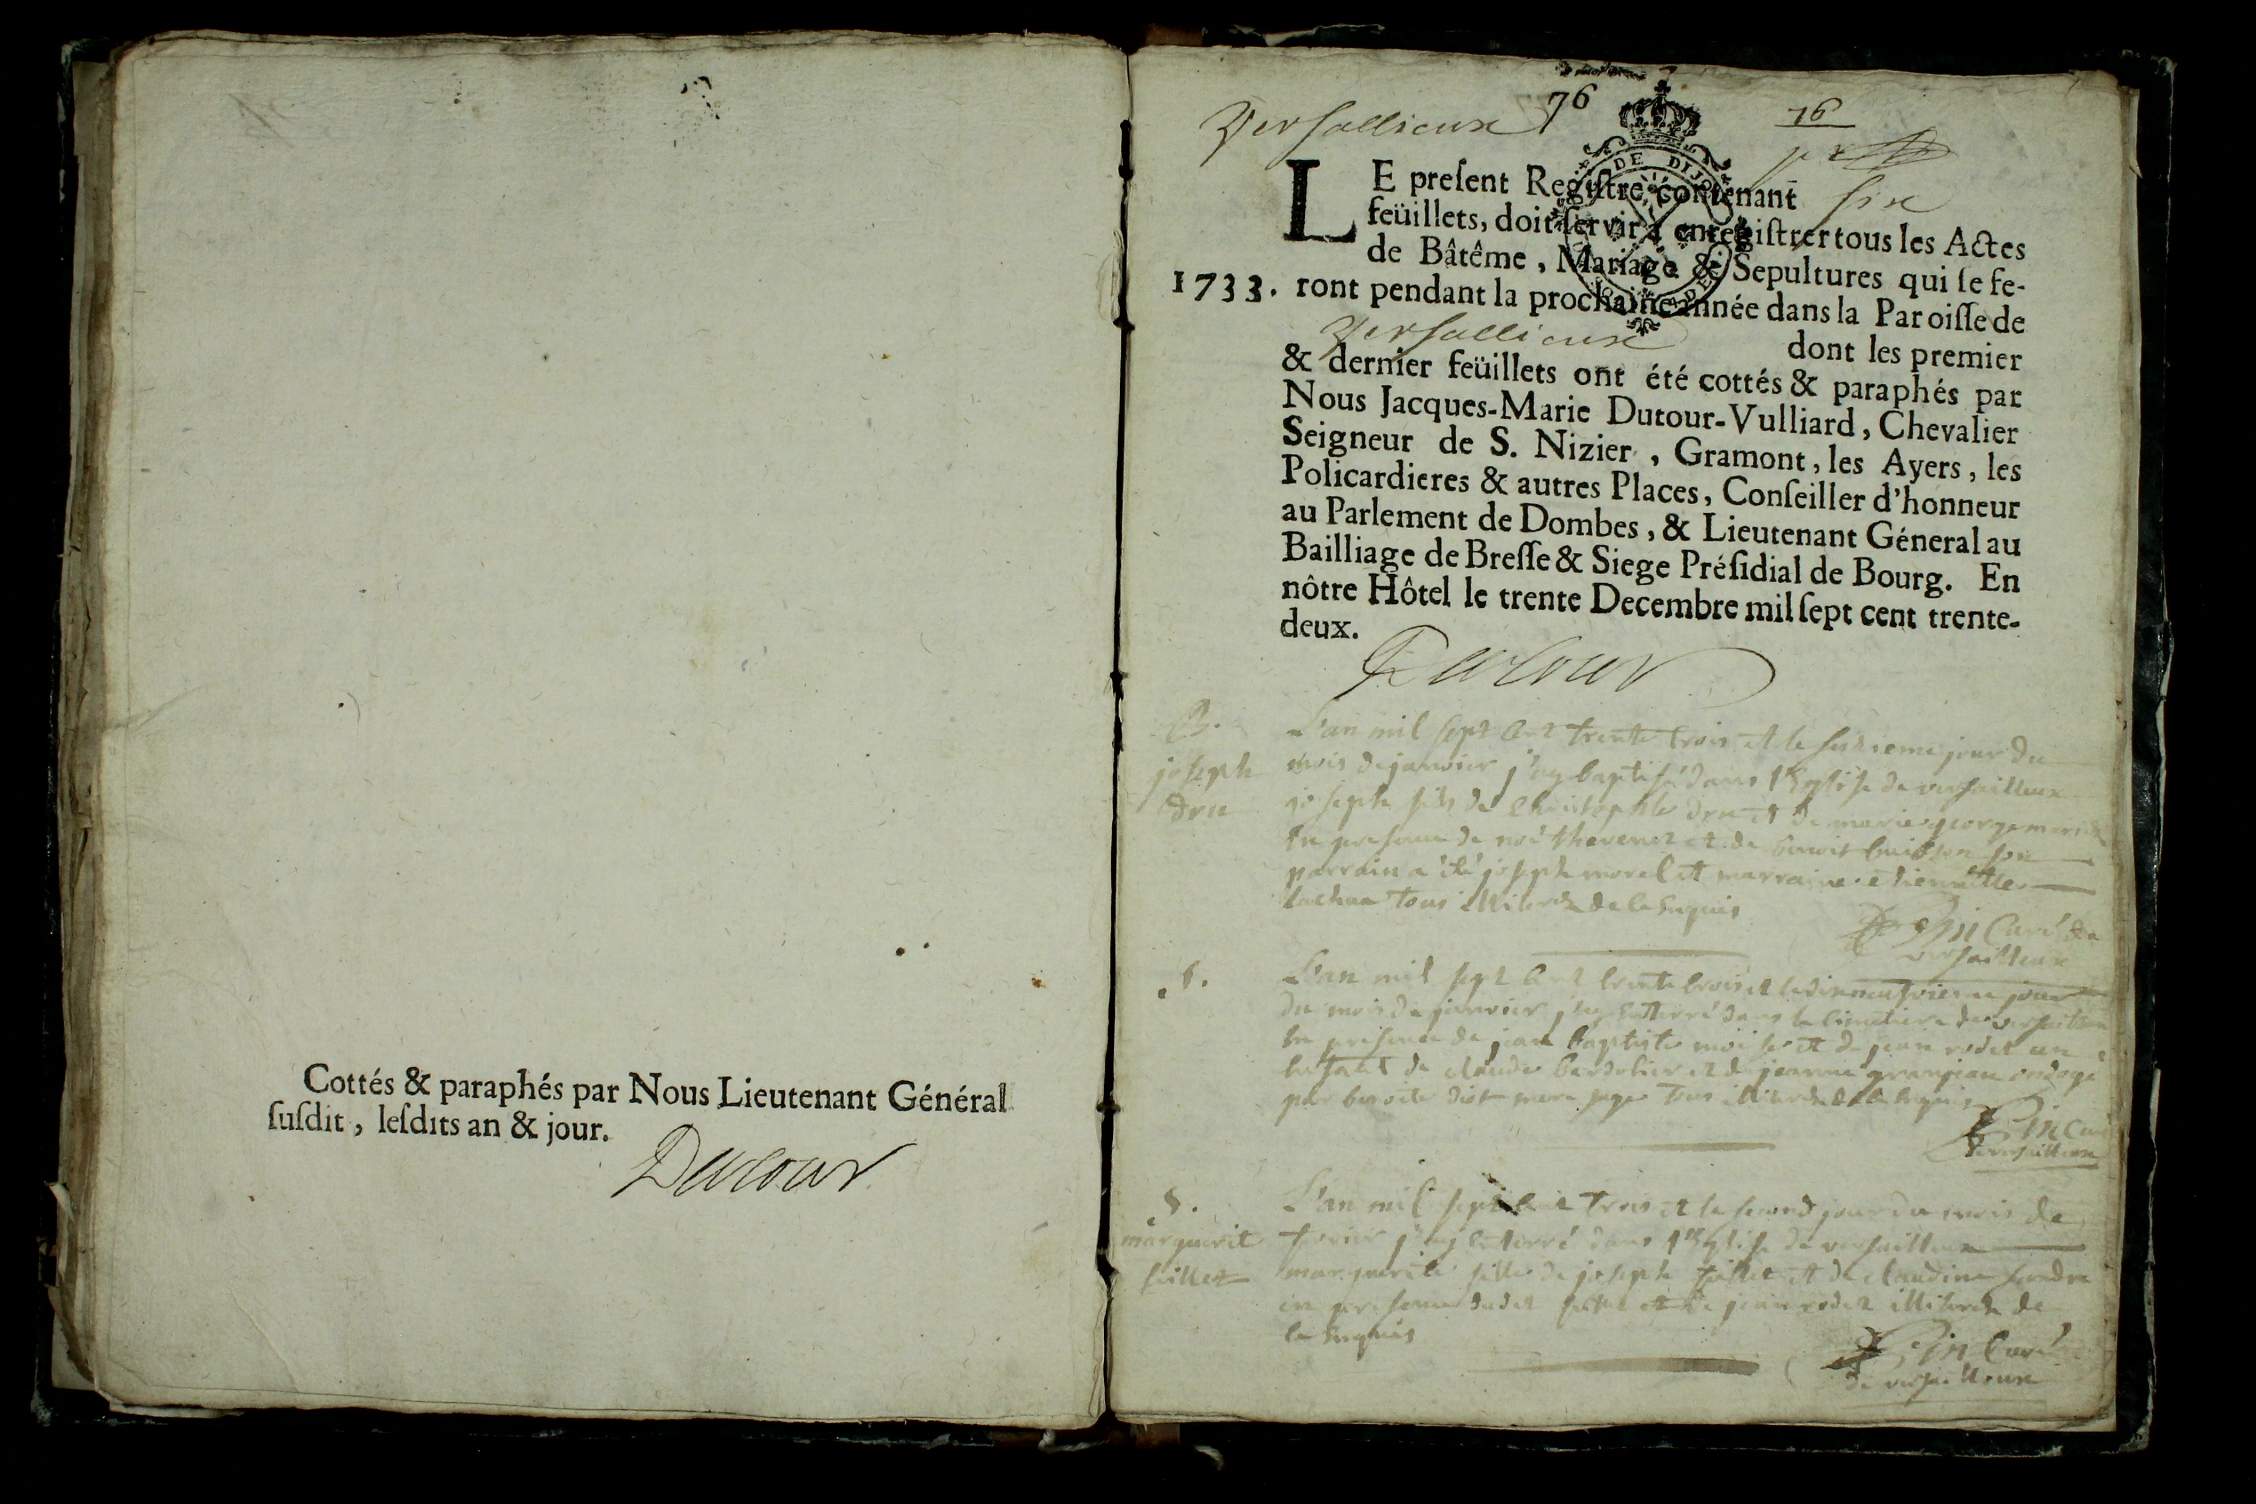 Cottés & paraphés par Nous Lieutenant Général
ſuſdit, leſdits an & jour.
Dutour
76
Versallieux
16
DE DIJON
LE preſent Regiſtre contenant six
feüillets, doit ſervir à enregiſtrer tous les Actes
de Bâtême, Mariage & Sepultures qui ſe fe-
1733. ront pendant la prochaine année dans la Paroiſſe de
Versallieux dont les premier
& dernier feüillets ont été cottés & paraphés par
Nous Jacques-Marie Dutour-Vulliard, Chevalier
Seigneur de S. Nizier, Gramont, les Ayers, les
Policardieres & autres Places, Conſeiller d'honneur
au Parlement de Dombes, & Lieutenant Géneral au
Bailliage de Breſſe & Siege Préſidial de Bourg. En
nôtre Hôtel le trente Decembre mil ſept cent trente-
deux.
Dutour
B.
joseph
dru
L'an mil sept cent trente trois et le jour du
mois de janvier j'ay baptisé dans l'Eglise de versailleux
joseph fils de christophle dru et de marie george
En presence de noé thevenet et de benoit buisson son
parrain a été joseph morel et marraine etiennette
tous illiterez de ce Enquis
curé de
versailleux
S.
L'an mil sept cent trente trois et le dixneufvieme jour
du mois de janvier j'ay Enterré dans le cimetiere de versailleux
En presence de jean baptiste et de jean rodet un
Enfant de claude et de jeanne granjean ondoyé
par benoite mere sage tous illiterez de ce Enquis
curé
de versailleux
S.
marguerite
fillet
L'an mil sept cent trois et le second jour du mois de
fevrier j'ay Enterré dans l'Eglise de versailleux
marguerite fille de joseph fillet et de claudine
en presence dudit et de jean rodet illiterez de
ce Enquis
curé
de versailleux